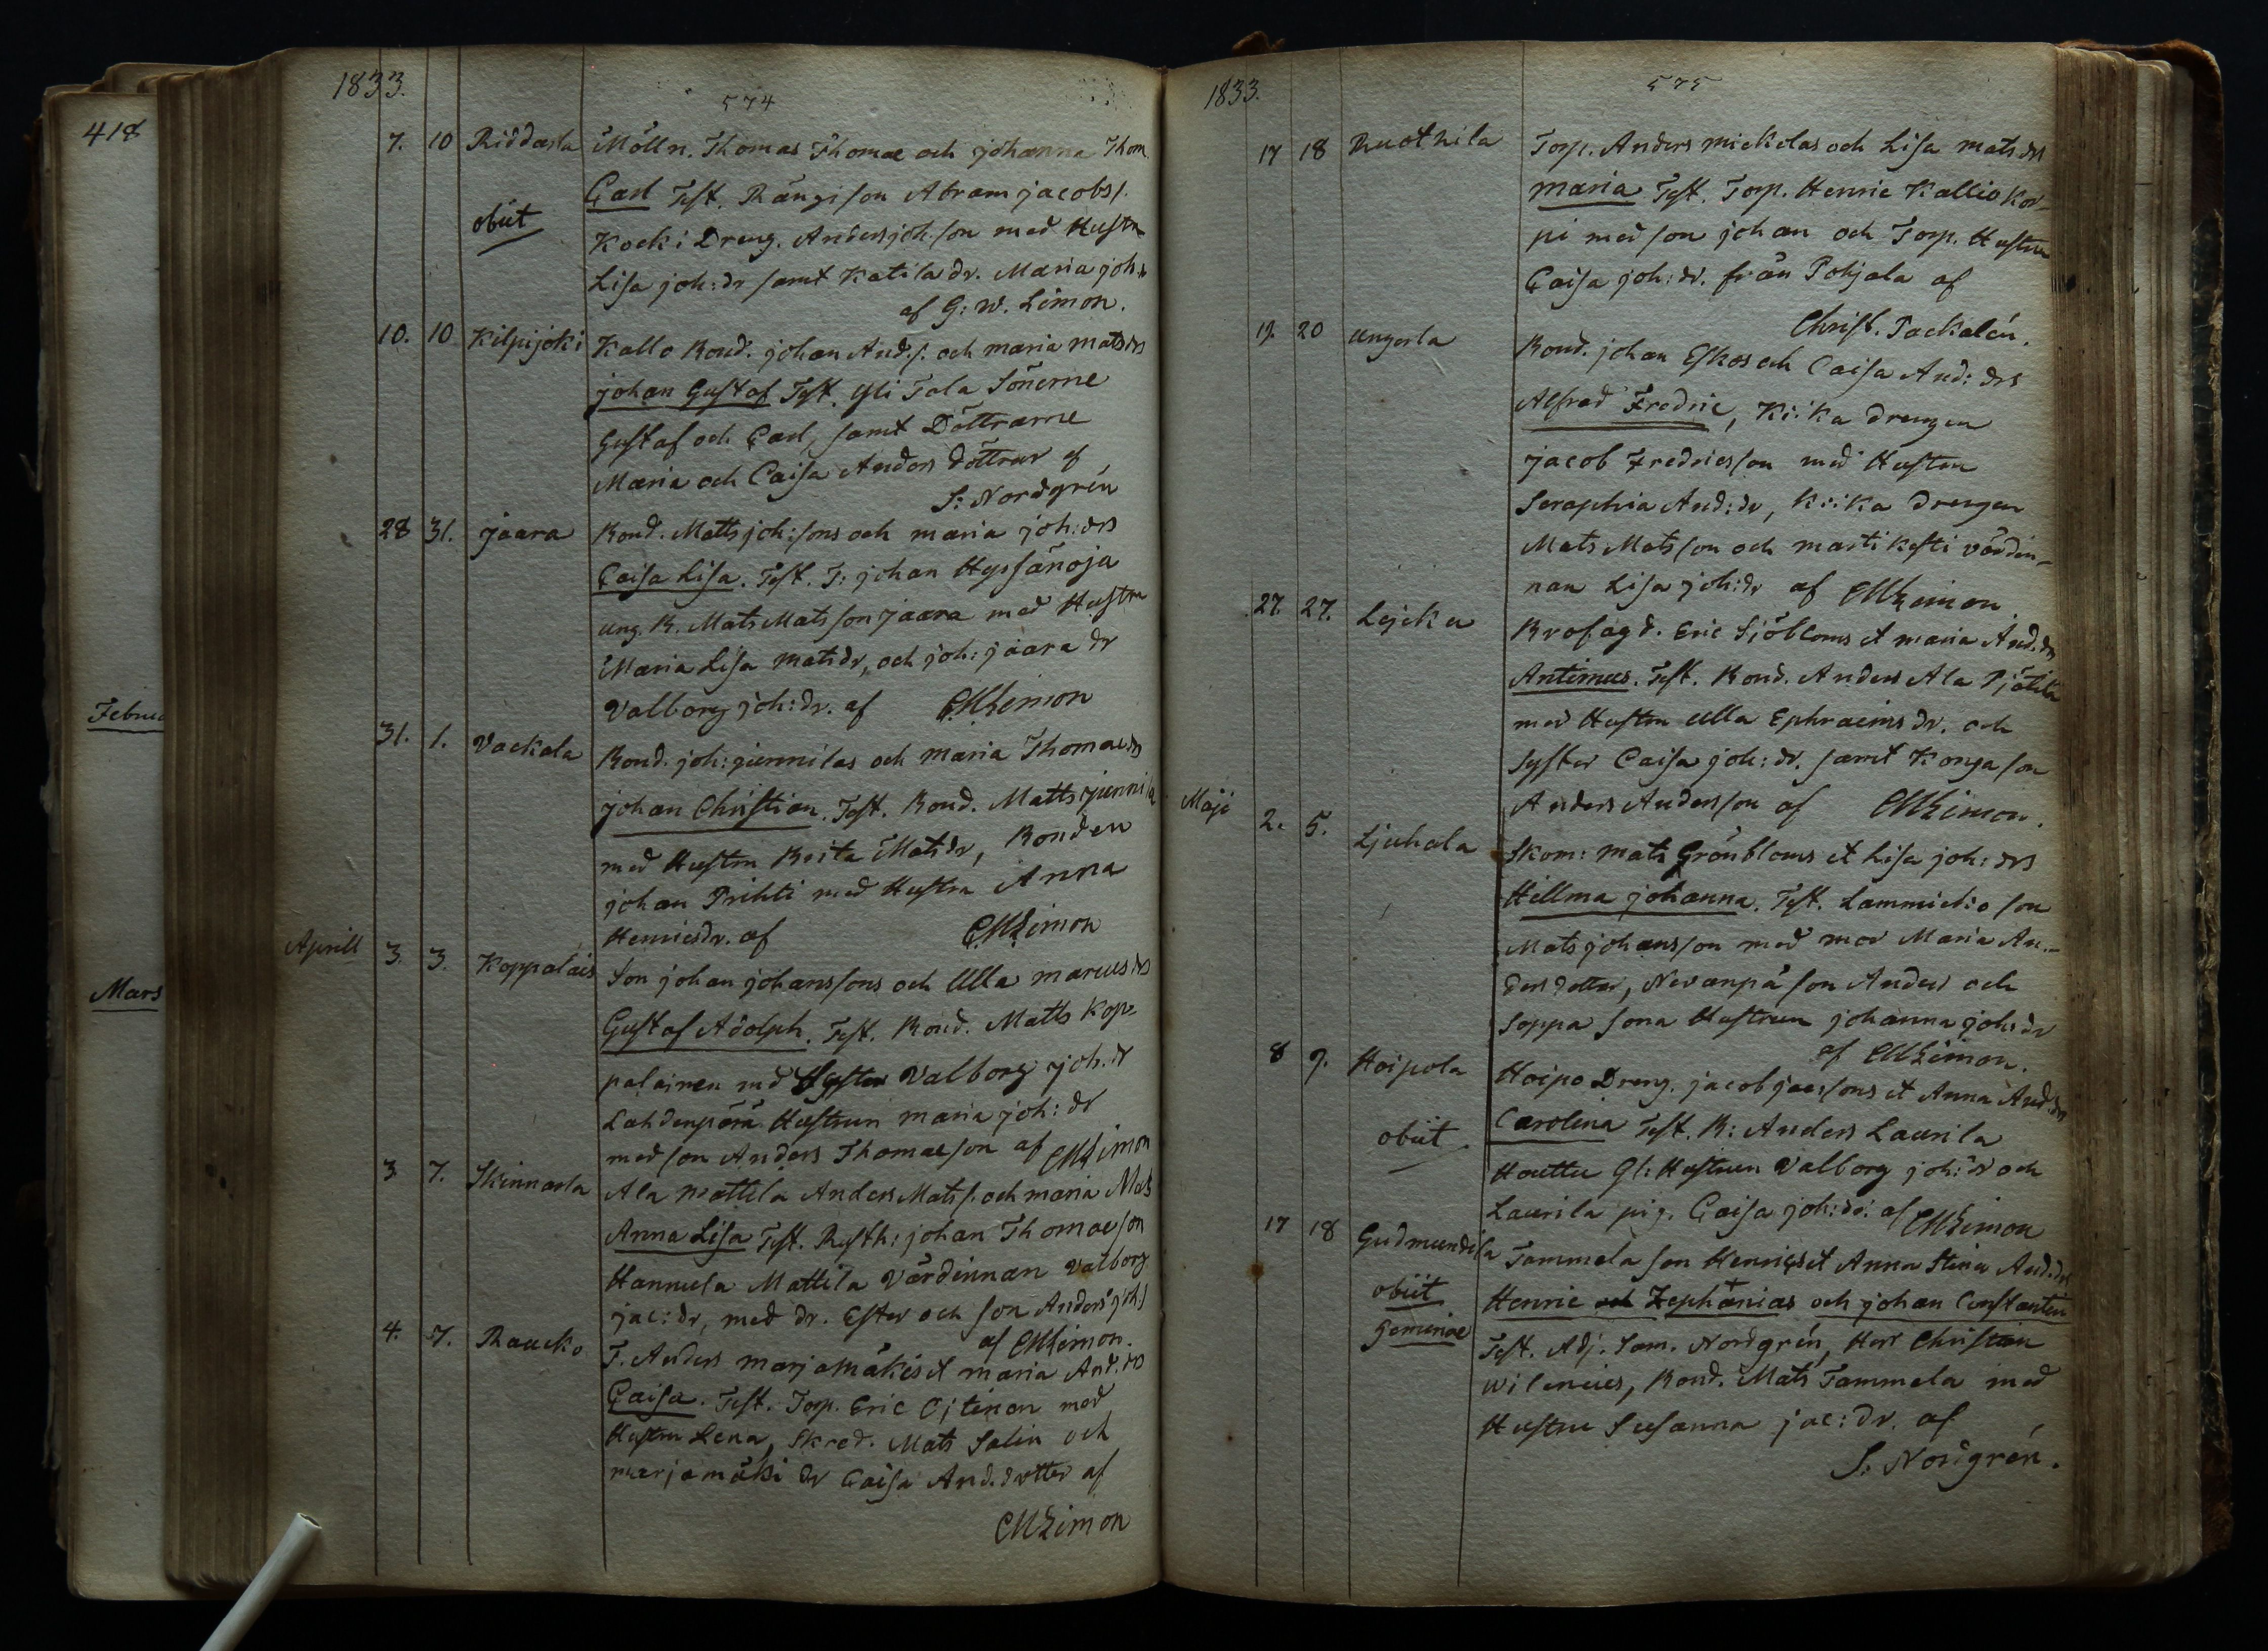 418
Februa
Mars
1833.
574
7. 10 Riddarla Mölln. Thomas Thomae och johanna Thom.
Carl Test. Rängi son Abram jacobs/.
obiit Kocki Dreng. Anders joh:son med Hustru
Lisa joh:dr samt Katila dr. Maria joh:dr
af G: W. Limon.
10. 10 Kilpijoki Kallo Bond. johan And./. och maria mats drs
johan Gustaf Test. Yli Tala Sönerne
Gustaf och Carl, samt Döttrarne
Maria och Caisa Anders döttrar af
S: Nordgrén
28 31. jaara Bond. Matts joh:sons och maria joh:drs
Caisa Lisa. Test. T: johan Hyssänoja
ung. B. Mats Matsson jaara med Hustru
Maria Lisa mats dr, och joh: jaara dr
Valborg joh:dr. af CMLimon
31. 1. Vackala Bond. joh: junnilas och maria Thomae drs
johan Christian. Test. Bond. Matts junnila
med Hustru Brita Mats dr, Bonden
johan Prihti med Hustru Anna
Henricsdr. af CMLimon
Aprill 3. 3. Koppalais Son johan johanssons och Ulla marcus drs
Gustaf Adolph. Test. Bond. Matts Kop-
palainen med Syster Valborg joh:dr
Lahdenperä Hustrun maria joh:dr
med son Anders Thomaeson af CMLimon
3 7. Skinnarla Ala mattila Anders Mats/. och maria Mats
Anna Lisa Test. Rusth: johan Thomaeson
Hannula Mattila Värdinnan Valborg
jac:dr, med dr. Ester och son Anders joh/
af CMLimon.
4. 7. Raucko T. Anders marjamäkis et maria And.drs
Caisa. Test. Torp. Eric Ojtinen med
Hustru Lena, Skred. Mats Salin och
marjamäki dr Caisa And.dotter af
CMLimon
1833.
575
17 18 Ruotsila Torp. Anders mickolas och Lisa mats drs
maria Test. Torp. Henric Kallio Kor-
pi med son johan och Torp. Hustru
Caisa joh:dr. från Pohjala af
Christ. Packalén.
19. 20 ungerla Bond. johan Eskos och Caisa And:drs
Alfred Fredric, Kiika drengen
jacob Fredricsson med Hustru
Seraphia And:dr, Kiika drengen
Mats Matsson och marti kesti värdin-
nan Lisa joh:dr af CMLimon.
27. 27. Lejcku Brofogd. Eric Sjöbloms et maria And.drs
Antimus. Test. Bond. Anders Ala Pjätilä
med Hustru Ulla Ephraims dr. och
Syster Caisa joh:dr. samt Konga son
Anders Andersson af CMLimon.
Maji 2. 5. Ljuhala Skom: mats Grönbloms et Lisa joh:drs
Hillma johanna. Test. Lammickio son
Mats johansson med mor Maria An-
ders dotter, Nevanpä son Anders och
Soppa sona Hustrun johanna joh:dr
af CMLimon.
8 9. Hoipola Hoipo Dreng. jacob jacssons et Anna And.drs
obiit. Carolina Test. B: Anders Laurila
Houttu Gl: Hustrun Valborg joh:dr och
Laurila pig. Caisa joh:dr: af CMLimon
17 18 Gudmundila Tammela son Henrics et Anna Stina And.drs
obiit Henric och Zephanias och johan Constantin
Geminae Test. Adj. Sam. Nordgrén, Herr Christian
Wilenius, Bond. Mats Tammela med
Hustru Susanna jac:dr. af
S: Nordgrén.